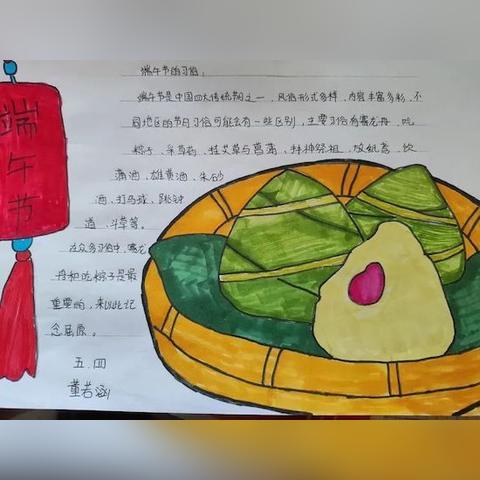 端午节
端午节的习俗：
端午节是中国四大传统节日之一，风俗形式多样、内容丰富多彩，不
同地区的节日习俗可能会有一些区别，主要习俗有赛龙舟、吃
粽子、采草药、挂艾草与菖蒲、拜神祭祖、放纸鸢、饮
蒲酒、雄黄酒、朱砂
酒、打马球、跳钟
道、斗草等。
在众多习俗中，赛龙
舟和吃粽子是最
重要的，来以此记
念屈原。
五.四
董若涵